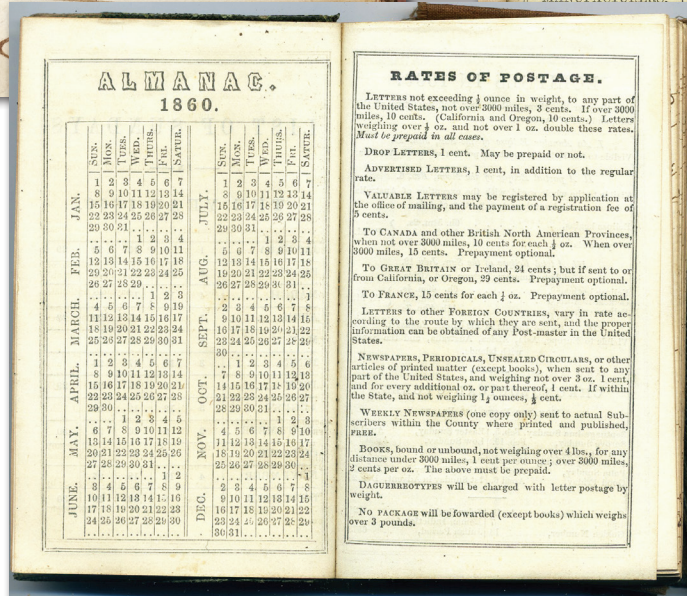 ALMANAC.
1860.
SUN. MON. TUES. WED. THURS. FRI. SATUR.
JAN.
1 2 3 4 5 6 7
8 9 10 11 12 13 14
15 16 17 18 19 20 21
22 23 24 25 26 27 28
29 30 31 .. .. .. ..
FEB.
.. .. .. 1 2 3 4
5 6 7 8 9 10 11
12 13 14 15 16 17 18
19 20 21 22 23 24 25
26 27 28 29 .. .. ..
MARCH.
.. .. .. .. 1 2 3
4 5 6 7 8 9 19
11 12 13 14 15 16 17
18 19 20 21 22 23 24
25 26 27 28 29 30 31
APRIL.
1 2 3 4 5 6 7
8 9 10 11 12 13 14
15 16 17 18 19 20 21
22 23 24 25 26 27 28
29 30 .. .. .. .. ..
MAY.
.. .. 1 2 3 4 5
6 7 8 9 10 11 12
13 14 15 16 17 18 19
20 21 22 23 24 25 26
27 28 29 30 31 .. ..
JUNE.
.. .. .. .. .. 1 2
3 4 5 6 7 8 9
10 11 12 13 14 15 16
17 18 19 20 21 22 23
24 25 26 27 28 29 30
SUN. MON. TUES. WED. THURS. FRI. SATUR.
JULY.
1 2 3 4 5 6 7
8 9 10 11 12 13 14
15 16 17 18 19 20 21
22 23 24 25 26 27 28
29 30 31 .. .. .. ..
AUG.
.. .. .. 1 2 3 4
5 6 7 8 9 10 11
12 13 14 15 16 17 18
19 20 21 22 23 24 25
26 27 28 29 30 31 ..
SEPT.
.. .. .. .. .. .. 1
2 3 4 5 6 7 8
9 10 11 12 13 14 15
16 17 18 19 20 21 22
23 24 25 26 27 28 29
30 .. .. .. .. .. ..
OCT.
.. 1 2 3 4 5 6
7 8 9 10 11 12 13
14 15 16 17 18 19 20
21 22 23 24 25 26 27
28 29 30 31 .. .. ..
NOV.
.. .. .. .. 1 2 3
4 5 6 7 8 9 10
11 12 13 14 15 16 17
18 19 20 21 22 23 24
25 26 27 28 29 30 ..
DEC.
.. .. .. .. .. .. 1
2 3 4 5 6 7 8
9 10 11 12 13 14 15
16 17 18 19 20 21 22
23 24 25 26 27 28 29
30 31 .. .. .. .. ..
RATES OF POSTAGE.
LETTERS not exceeding ½ ounce in weight, to any part of
the United States, not over 3000 miles, 3 cents. If over 3000
miles, 10 cents. (California and Oregon, 10 cents.) Letters
weighing over ½ oz. and not over 1 oz. double these rates.
Must be prepaid in all cases.
DROP LETTERS, 1 cent. May be prepaid or not.
ADVERTISED LETTERS, 1 cent, in addition to the regular
rate.
VALUABLE LETTERS may be registered by application at
the office of mailing, and the payment of a registration fee of
5 cents.
To CANADA and other British North American Provinces,
when not over 3000 miles, 10 cents for each ½ oz. When over
3000 miles, 15 cents. Prepayment optional.
To GREAT BRITAIN or Ireland, 24 cents; but if sent to or
from California, or Oregon, 29 cents. Prepayment optional.
To FRANCE, 15 cents for each ¼ oz. Prepayment optional.
LETTERS to other FOREIGN COUNTRIES, vary in rate ac-
cording to the route by which they are sent, and the proper
information can be obtained of any Post-master in the United
States.
NEWSPAPERS, PERIODICALS, UNSEALED CIRCULARS, or other
articles of printed matter (except books), when sent to any
part of the United States, and weighing not over 3 oz. 1 cent,
and for every additional oz. or part thereof, 1 cent. If within
the State, and not weighing 1½ ounces, ½ cent.
WEEKLY NEWSPAPERS (one copy only) sent to actual Sub-
scribers within the County where printed and published,
FREE.
BOOKS, bound or unbound, not weighing over 4 lbs., for any
distance under 3000 miles, 1 cent per ounce; over 3000 miles,
2 cents per oz. The above must be prepaid.
DAGUERREOTYPES will be charged with letter postage by
weight.
NO PACKAGE will be fowarded (except books) which weighs
over 3 pounds.